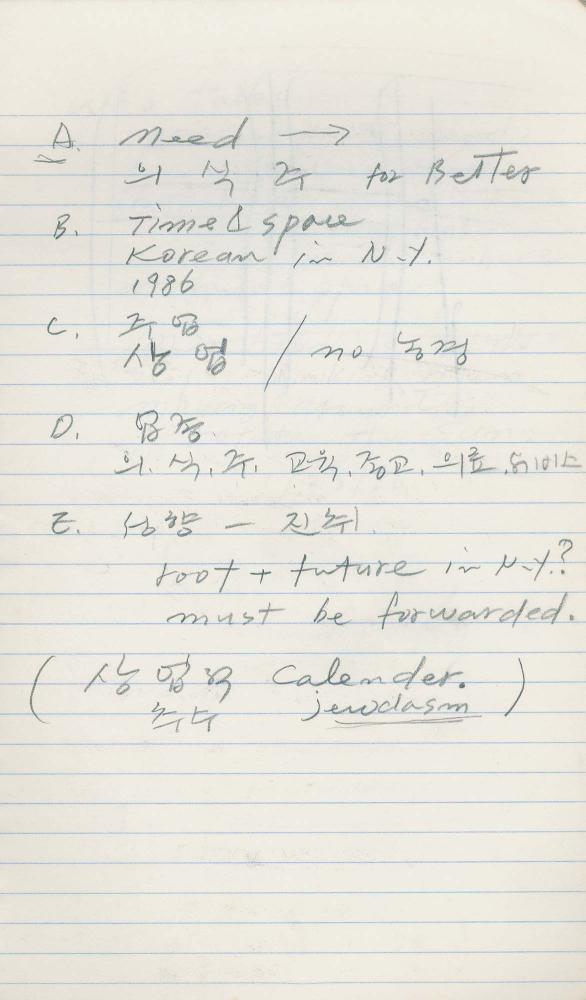 A. need →
의 식 주 for Better
B. Time & space
Korean in N.Y.
1986
C. 주 업
상 업 / no 농경
D. 업종.
의. 식. 주. 교육, 종교, 의료, 서비스
E. 성향 – 진취.
root + future in N.Y.?
must be forwarded.
( 상 업력 Calender. )
추수 jewdasm